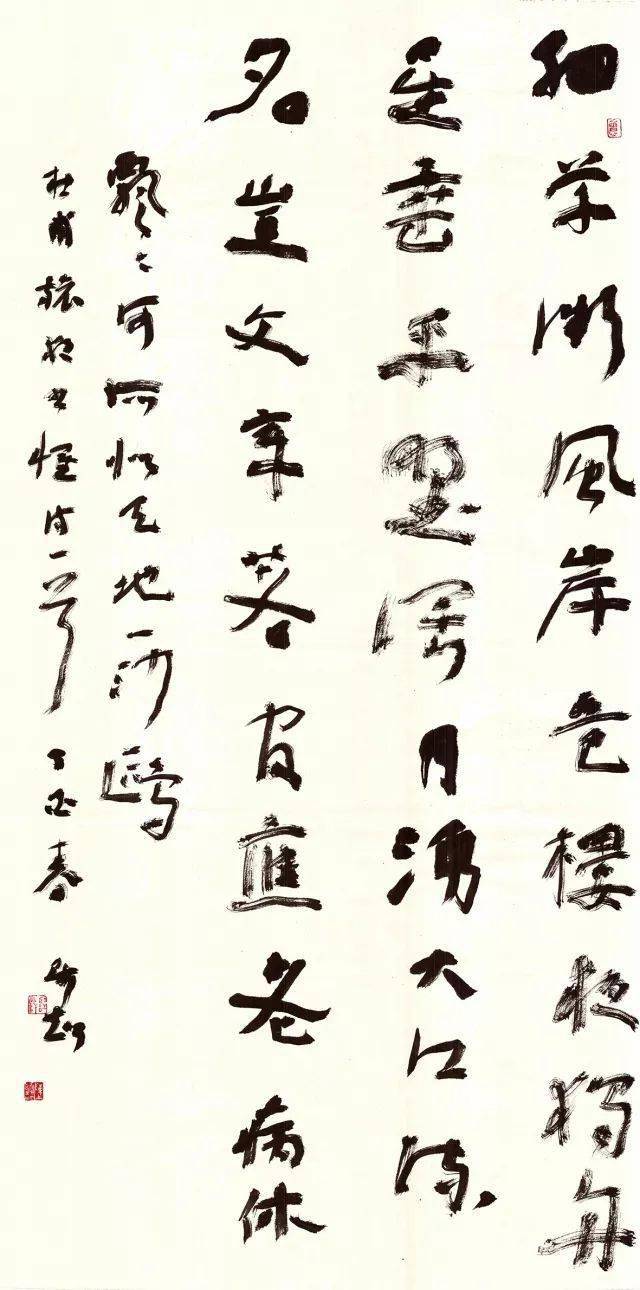 細草微風岸危樓夜獨舟
星垂平野闊月湧大江流
名豈文章著官應老病休
飄々何所似天地一沙鷗
杜甫旅夜书懷詩一首丁酉春